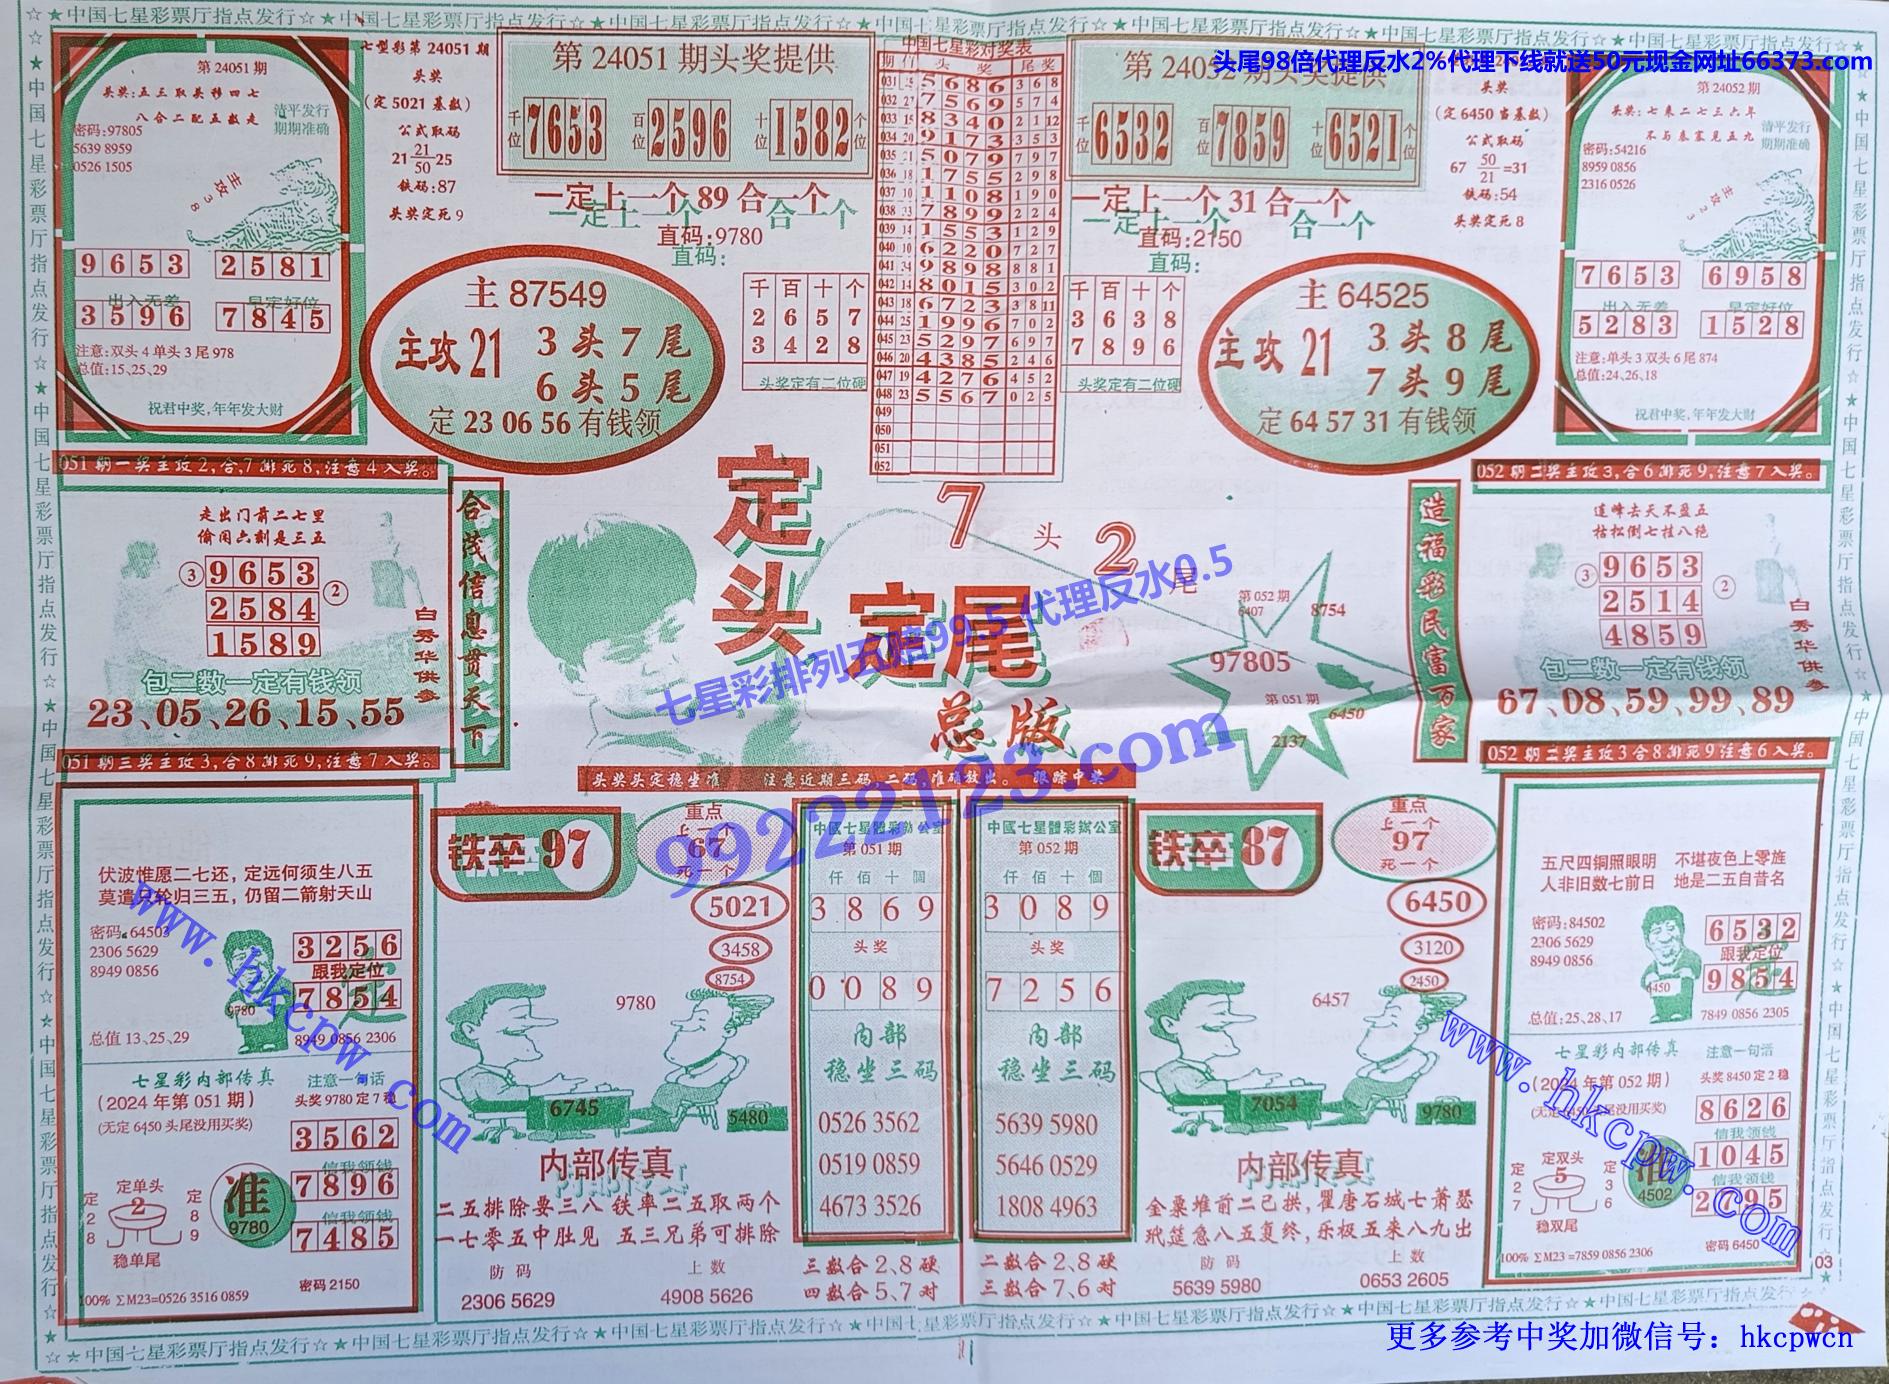 ☆★中国七星彩票厅指点发行☆★中国七星彩票厅指点发行☆★中国七星彩票厅指点发行☆★中国七星彩票厅指点发行☆★
头尾98倍代理反水2%代理下线就送50元现金网址66373.com
第 24051 期
头奖:五三取头移四七
八合二配五数走
密码:97805
5639 8959
0526 1505
清平发行
期期准确
主攻38
9653 2581
出入无差 早定好位
3596 7845
注意:双头 4 单头 3 尾 978
总值:15、25、29
祝君中奖,年年发大财
七型彩第 24051 期
头奖
(定 5021 基数)
公式取码
21 21/50 25
铁码:87
头奖定死 9
第 24051 期头奖提供
千位 7653 百位 2596 十位 1582 个位
一定上一个 89 合一个
一定上一个 合一个
直码:9780
直码:
主 87549
主攻 21
3 头 7 尾
6 头 5 尾
定 23 06 56 有钱领
千 百 十 个
2 6 5 7
3 4 2 8
头奖定有二位硬
中国七星彩对奖表
期 头奖 尾奖
031 5686 368
032 7569 574
033 15 8340 2 1 12
034 20 9173 353
035 21 5079 797
036 18 1755 298
037 10 1108 190
038 33 7899 224
039 14 1553 129
040 10 6220 727
041 34 9898 881
042 14 8015 302
043 18 6723 3 8 11
044 25 1996 702
045 23 5297 697
046 20 4385 246
047 19 4276 452
048 23 5567 025
049
050
051
052
第 24052 期头奖提供
千位 6532 百位 7859 十位 6521 个位
一定上一个 31 合一个
一定上一个 合一个
直码:2150
直码:
千 百 十 个
3 6 3 8
7 8 9 6
头奖定有二位硬
主 64525
主攻 21
3 头 8 尾
7 头 9 尾
定 64 57 31 有钱领
头奖
(定 6450 当基数)
公式取码
67 50/21 =31
铁码:54
头奖定死 8
第 24052 期
头奖:七来二七三六年
不与秦塞见五九
密码:54216
8959 0856
2316 0526
清平发行
期期准确
主攻23
7653 6958
出入无差 早定好位
5283 1528
注意:单头 3 双头 6 尾 874
总值:24、26、18
祝君中奖,年年发大财
051 期一奖主攻 2,合,7 排死 8,注意 4 入奖。
走出门前二七里
偷闲六刻是三五
③ 9653 ②
2584
1589
白秀华供参
包二数一定有钱领
23、05、26、15、55
合茂信息贯天下
定头定尾
总版
7 头 2 尾
第 052 期
6407
8754
97805
第 051 期
6450
2137
七星彩排列五赔99.5 代理反水0.5
99222123.com
造福彩民富万家
052 期二奖主攻 3,合 6 排死 9,注意 7 入奖。
连峰去天不盈五
枯松倒七挂八绝
③ 9653 ②
2514
4859
白秀华供参
包二数一定有钱领
67、08、59、99、89
051 期三奖主攻 3,合 8 排死 9,注意 7 入奖。
头奖头定稳坐准 注意近期三码、二码、准确放出。 跟踪中奖
052 期二奖主攻 3 合 8 排死 9 注意 6 入奖。
伏波惟愿二七还，定远何须生八五
莫遣只轮归三五，仍留二箭射天山
密码:64503
2306 5629
8949 0856
3256
跟我定位
7854
9780
总值 13、25、29
8949 0856 2306
七星彩内部传真
(2024 年第 051 期)
(无定 6450 头尾没用买奖)
注意一句话
头奖 9780 定 7 稳
3562
信我领钱
7896
信我领钱
7485
定28
定单头
2
稳单尾
定89
准
9780
100% ΣM23=0526 3516 0859
密码 2150
www.hkcpw.com
铁卒 97
重点
上一个
67
死一个
5021
3458
8754
9780
6745
5480
内部传真
二五排除要三八 铁率二五取两个
一七零五中肚见 五三兄弟可排除
防码 上数
2306 5629 4908 5626
中國七星體彩辦公室
第 051 期
仟 佰 十 個
3 8 6 9
头奖
0 0 8 9
内部
稳坐三码
0526 3562
0519 0859
4673 3526
三数合 2、8 硬
四数合 5、7 对
中國七星體彩辦公室
第 052 期
仟 佰 十 個
3 0 8 9
头奖
7 2 5 6
内部
稳坐三码
5639 5980
5646 0529
1808 4963
二数合 2、8 硬
三数合 7、6 对
铁卒 87
重点
上一个
97
死一个
6450
3120
2450
6457
7054
9780
内部传真
金粟堆前二已拱,瞿唐石城七萧瑟
玳筵急八五复终,乐极五来八九出
防码 上数
5639 5980 0653 2605
五尺四铜照眼明 不堪夜色上零旌
人非旧数七前日 地是二五自昔名
密码:84502
2306 5629
8949 0856
6532
跟我定位
9854
6450
总值:25、28、17
7849 0856 2305
七星彩内部传真
(2024 年第 052 期)
注意一句话
头奖 8450 定 2 稳
8626
信我领钱
1045
信我领钱
2795
定27
定双头
5
稳双尾
定36
准
4502
100% ΣM23 =7859 0856 2306
密码 6450
www.hkcpw.com
03
☆★中国七星彩票厅指点发行☆★中国七星彩票厅指点发行☆★中国七星彩票厅指点发行☆★中国七星彩票厅指点发行☆
更多参考中奖加微信号：hkcpwcn